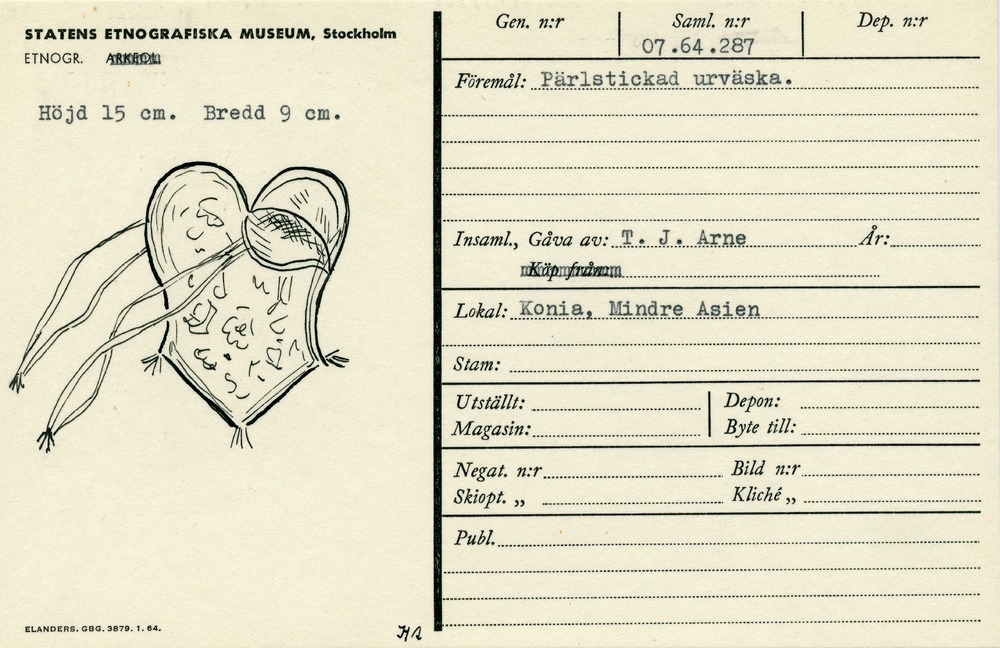 STATENS ETNOGRAFISKA MUSEUM, Stockholm
ETNOGR. ARKEOL.
Höjd 15 cm. Bredd 9 cm.
Gen. n:r
Saml. n:r
Dep. n:r
07.64.287
Föremål: Pärlstickad urväska.
Insaml., Gåva av: T. J. Arne År:
Köp från:
Lokal: Konia, Mindre Asien
Stam:
Utställt: Depon:
Magasin: Byte till:
Negat. n:r Bild n:r
Skiopt. „ Kliché „
Publ.
ELANDERS. GBG. 3879. 1. 64.